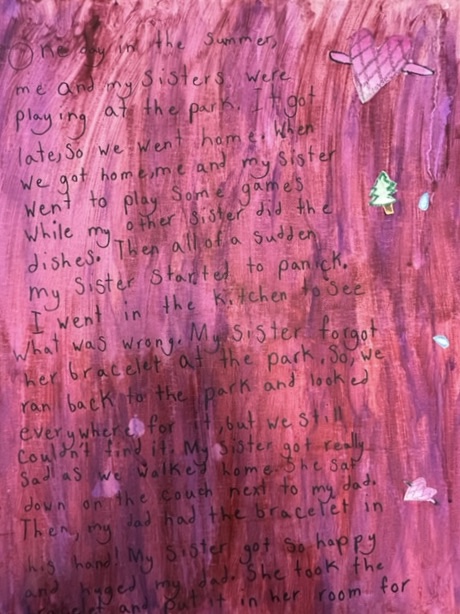 One day in the summer,
me and my sisters were
playing at the park. It got
late, So we went home. When
we got home, me and my sister
went to play some games
while my other sister did the
dishes. Then all of a sudden
my sister started to panick.
I went in the kitchen to see
what was wrong. My sister forgot
her bracelet at the park. So, we
ran back to the park and looked
everywhere for it, but we still
couldn't find it. My sister got really
sad as we walked home. She sat
down on the couch next to my dad.
Then, my dad had the bracelet in
his hand! My sister got so happy
and hyged my dad. She took the
bracelet and put it in her room for